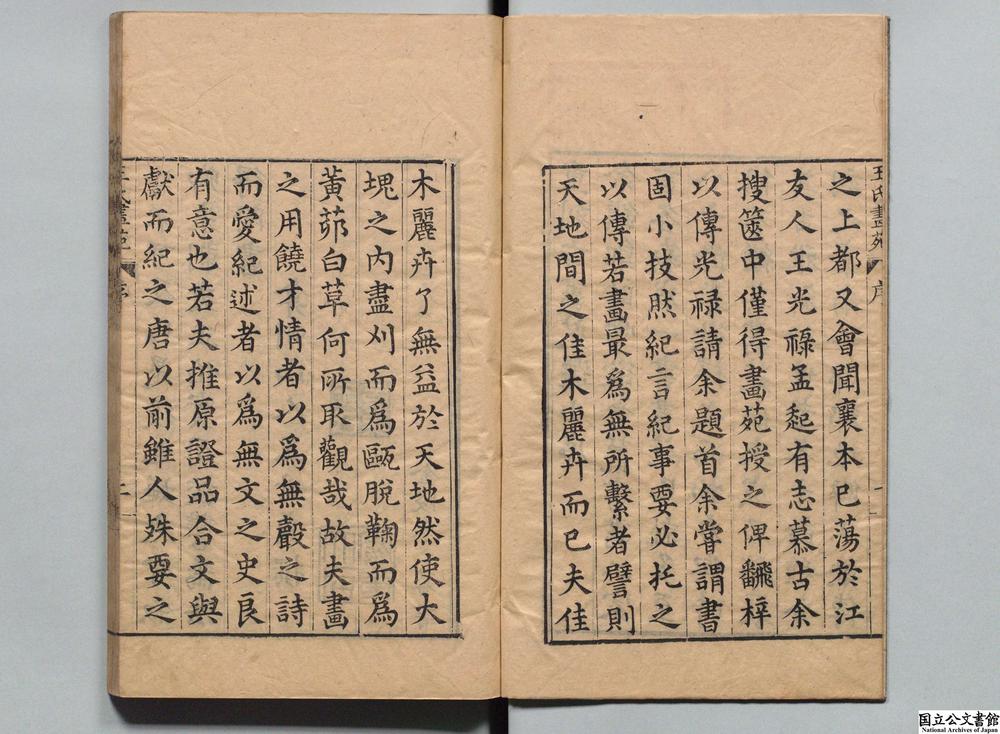 王氏畫苑 序 一
之上都又會聞襄本已蕩於江
友人王光祿孟起有志慕古余
搜篋中僅得畫苑授之俾飜梓
以傳光祿請余題首余嘗謂書
固小技然紀言紀事要必托之
以傳若畫最爲無所繫者譬則
天地間之佳木麗卉而已夫佳
木麗卉了無益於天地然使大
塊之內盡刈而爲甌脫鞠而爲
黃茆白草何所取觀哉故夫畫
之用饒才情者以爲無聲之詩
而愛紀述者以爲無文之史良
有意也若夫推原證品合文與
獻而紀之唐以前雖人殊要之
王氏畫苑 序 二
国立公文書館
National Archives of Japan